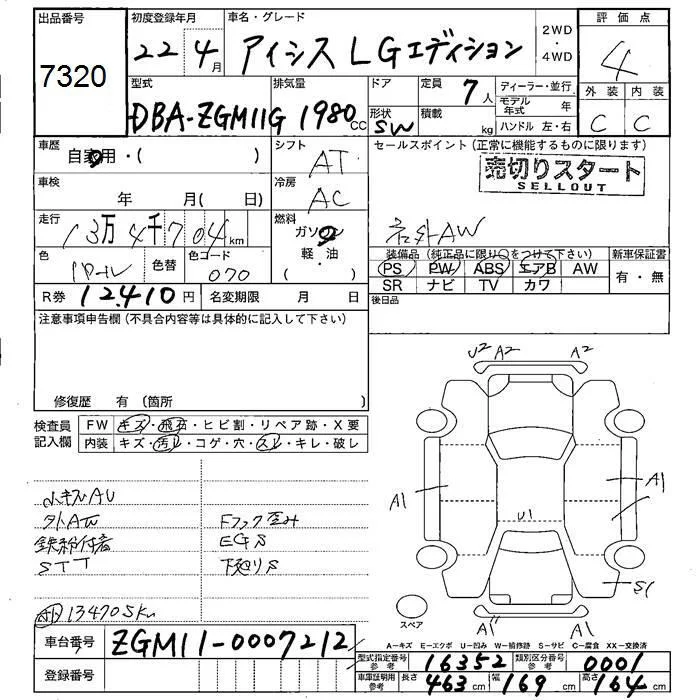 出品番号
7320
初度登録年月
22年 4月
車名・グレード
アイシス LGエディション
2WD・4WD
評価点
4
外装 内装
C C
型式
DBA-ZGM11G
排気量
1980 CC
ドア
形状
SW
定員
7人
積載
kg
ディーラー・並行
モデル年式 年
ハンドル 左・右
車歴
自家用・( )
シフト
AT
セールスポイント(正常に機能するものに限ります)
売切りスタート
SELLOUT
社外AW
車検
年 月( 日)
冷房
AC
走行
13万4千704km
燃料
ガソリン
軽・油
( )
色
パール
色替
色コード
070
装備品(純正品に限り○をつけて下さい)
PS PW ABS エアB AW
SR ナビ TV カワ
新車保証書
有・無
R券 12,410円
名変期限 月 日
後日品
注意事項申告欄(不具合内容等は具体的に記入して下さい)
修復歴 有(箇所 )
検査員記入欄
FW キズ・飛石・ヒビ割・リペア跡・X要
内装 キズ・汚レ・コゲ・穴・スレ・キレ・破レ
小キズAU
外AW
鉄粉付着
STT
Fフック歪み
EGS
下廻りS
134705km
U2 A2 A2
A1 A1
U1
S1
A1 A1
スペア
A-キズ E-エクボ U-凹み W-補修跡 S-サビ C-腐食 XX-交換済
車台番号
ZGM11-0007212
登録番号
型式指定番号参考 16352
類別区分番号参考 0001
車庫証明用参考 長さ 463cm 幅 169cm 高さ 164cm